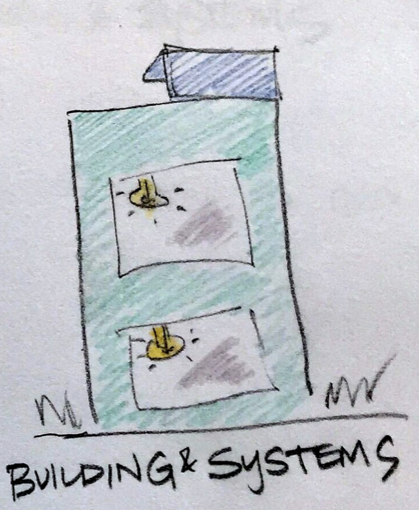 BUILDING & SYSTEMS